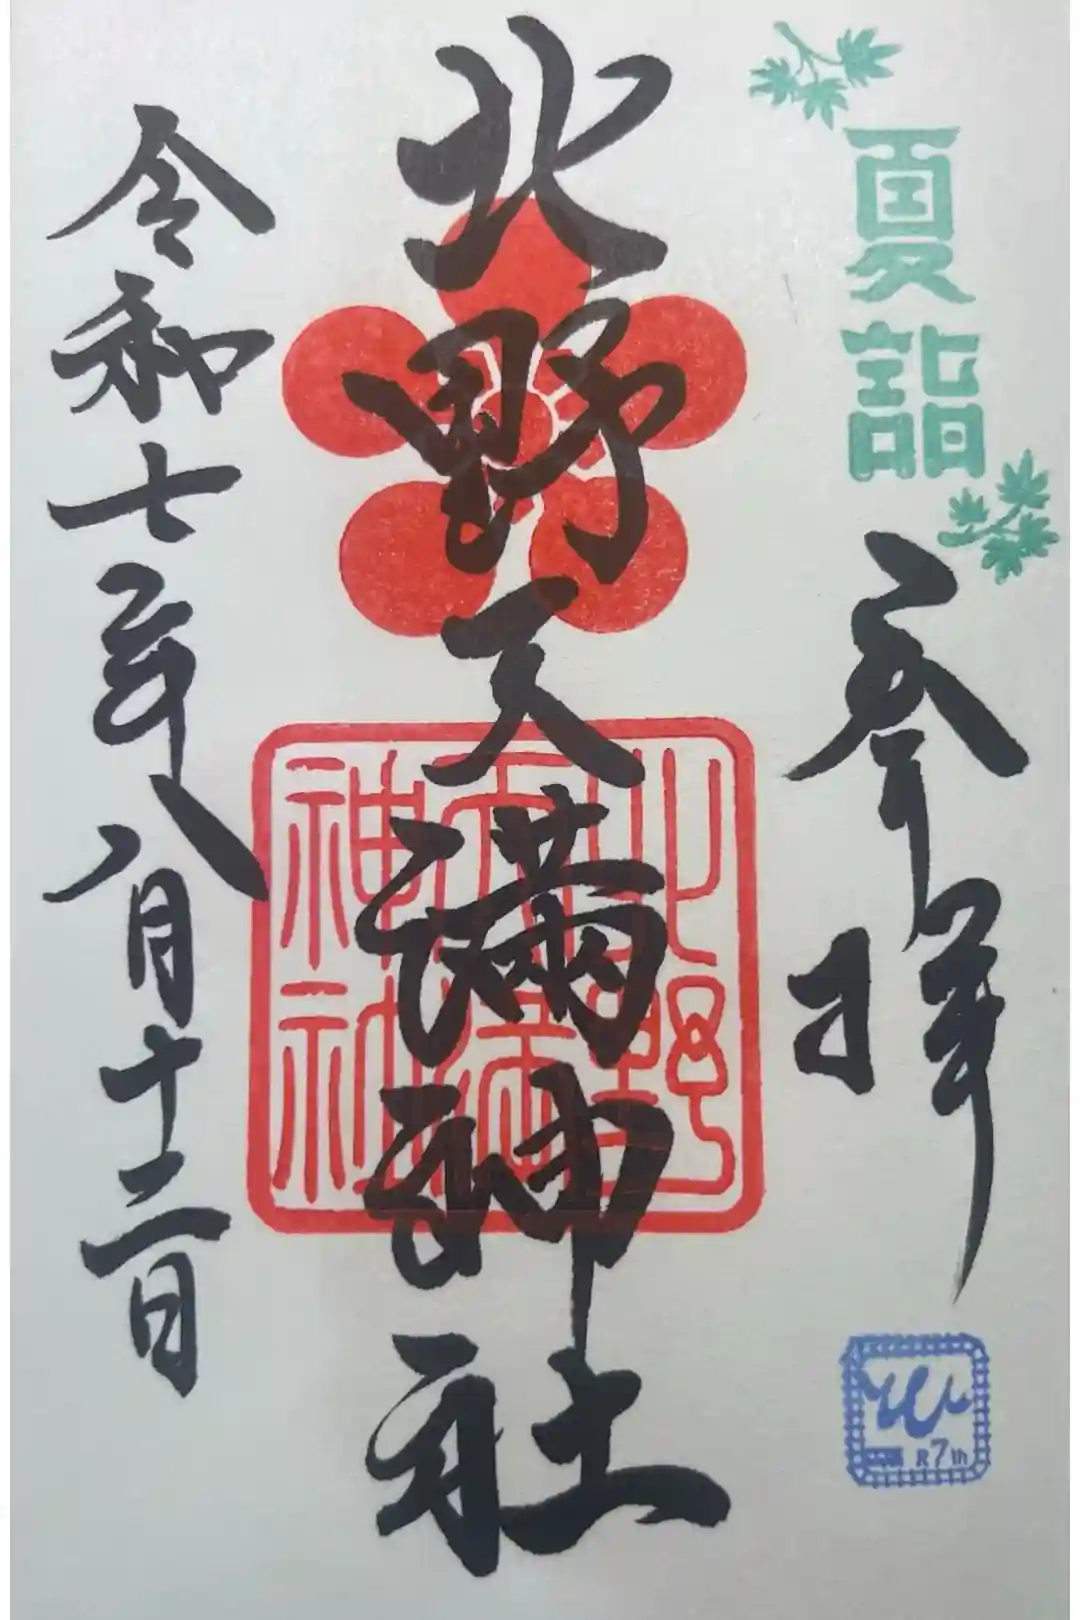 夏詣
参拝
北野天満神社
北野
天満
神社
令和七年八月十二日
R7th